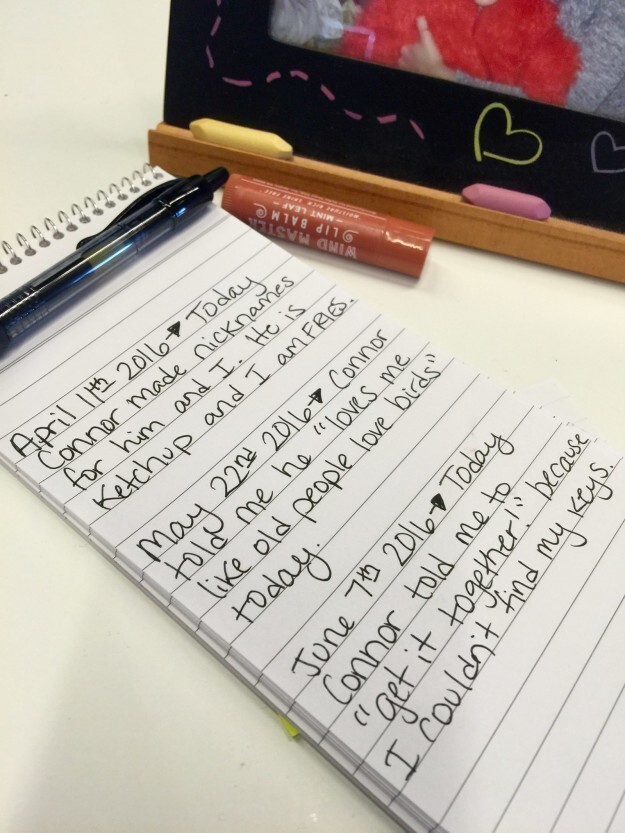 April 11th 2016 → Today
Connor made nicknames
for him and I. He is
Ketchup and I am FRIES.
May 22nd 2016 → Connor
told me he "loves me
like old people love birds"
today.
June 7th 2016 → Today
Connor told me to
"get it together!" because
I couldn't find my keys.
WIND MASTER
LIP BALM
– MINT LEAF –